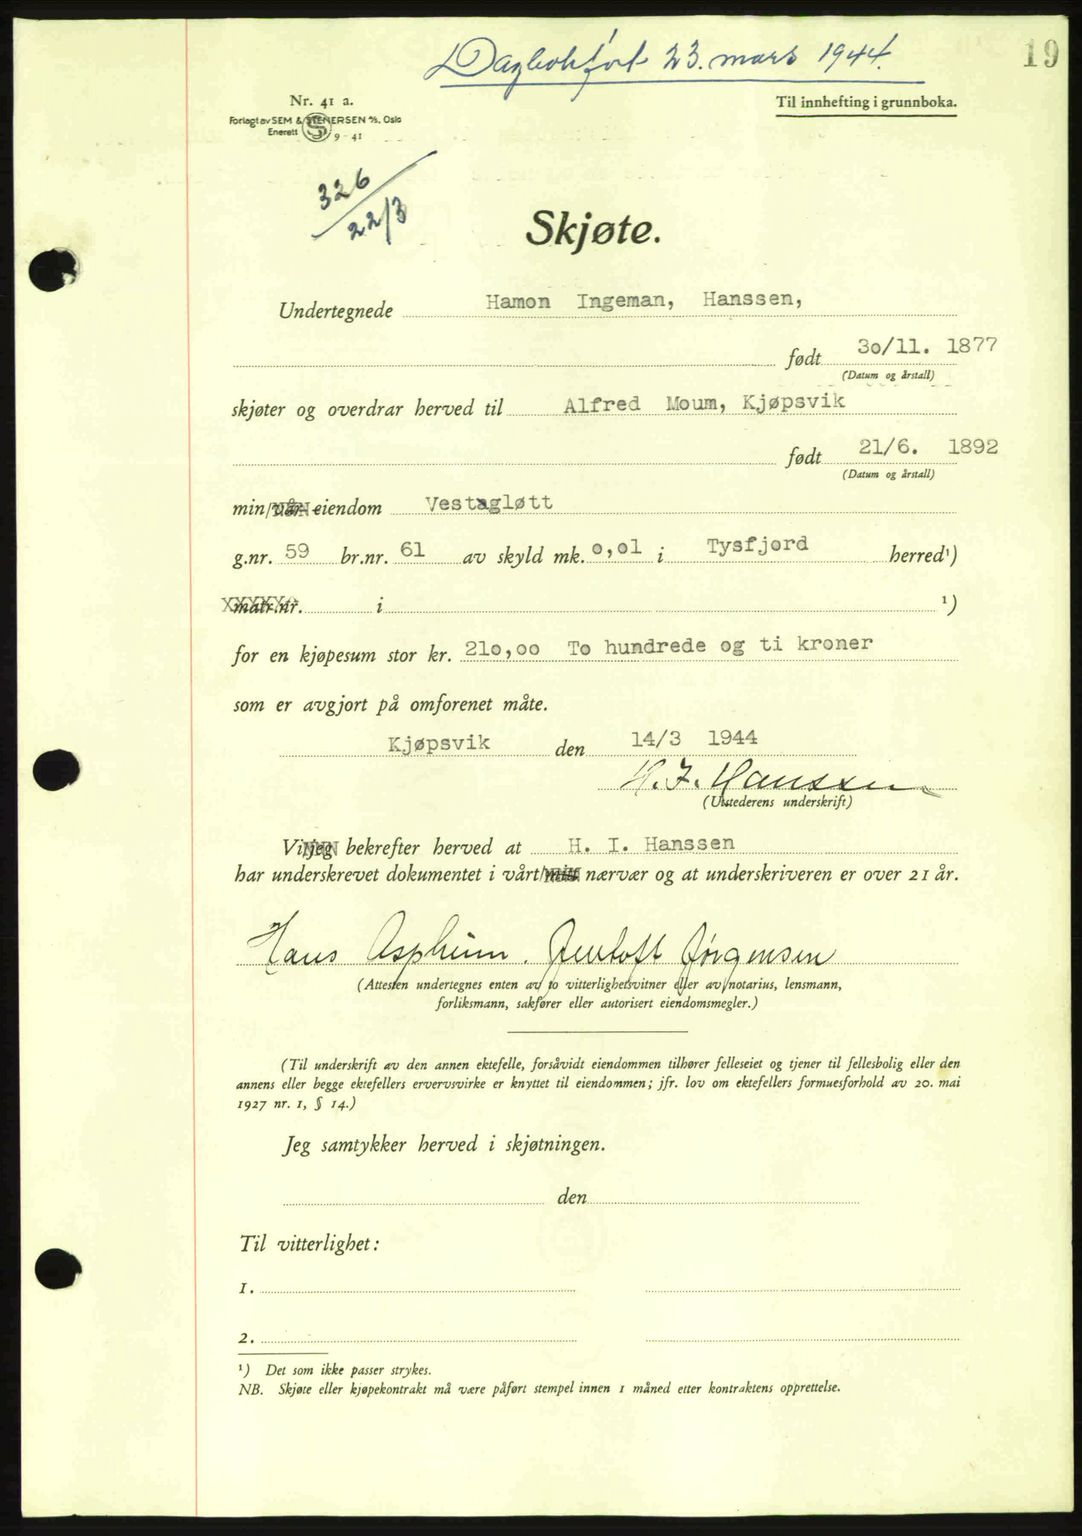 Dagbokført 23. mars 1944.
19
Nr. 41 a.
Til innhefting i grunnboka.
Forlagt av SEM & STENERSEN A/S, Oslo
Enerett S 9 - 41
326
22/3
Skjøte.
Undertegnede Hamon Ingeman, Hanssen,
født 30/11. 1877
(Datum og årstall)
skjøter og overdrar herved til Alfred Moum, Kjøpsvik
født 21/6. 1892
(Datum og årstall)
min/vår eiendom Vestagløtt
g.nr. 59 br.nr. 61 av skyld mk. 0,01 i Tysfjord herred¹)
matr.nr. i ¹)
for en kjøpesum stor kr. 210,00 To hundrede og ti kroner
som er avgjort på omforenet måte.
Kjøpsvik den 14/3 1944
H. I. Hanssen
(Utstederens underskrift)
Vi/jeg bekrefter herved at H. I. Hanssen
har underskrevet dokumentet i vårt/mitt nærvær og at underskriveren er over 21 år.
Hans Aspheim. Jentoft Jørgensen
(Attesten undertegnes enten av to vitterlighetsvitner eller av notarius, lensmann,
forliksmann, sakfører eller autorisert eiendomsmegler.)
(Til underskrift av den annen ektefelle, forsåvidt eiendommen tilhører felleseiet og tjener til fellesbolig eller den
annens eller begge ektefellers ervervsvirke er knyttet til eiendommen; jfr. lov om ektefellers formuesforhold av 20. mai
1927 nr. 1, § 14.)
Jeg samtykker herved i skjøtningen.
den
Til vitterlighet:
1.
2.
¹) Det som ikke passer strykes.
NB. Skjøte eller kjøpekontrakt må være påført stempel innen 1 måned etter kontraktens opprettelse.